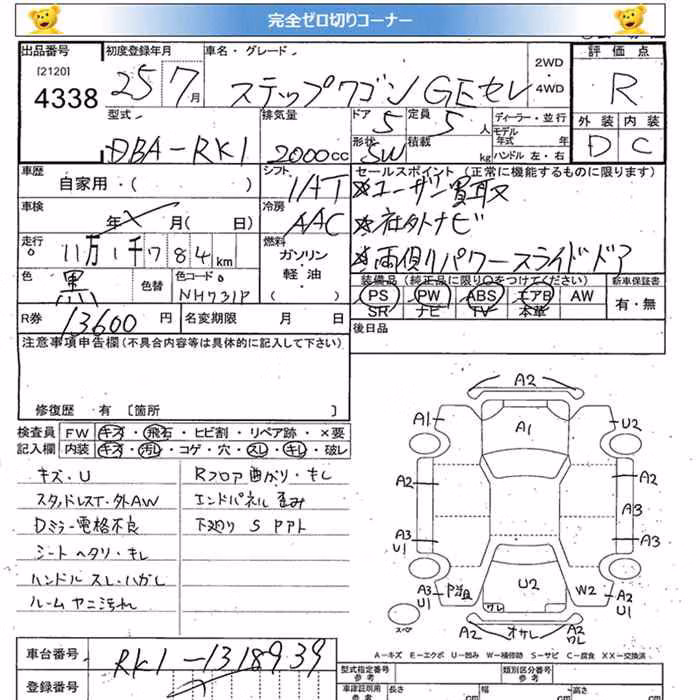 完全ゼロ切りコーナー
出品番号 初度登録年月 車名・グレード 2WD・4WD 評価点
[2120]
4338 25 7月 ステップワゴン GEセレ R
型式 排気量 ドア 5 定員 5人 ディーラー・並行 外装 内装
DBA-RK1 2000cc 形状 SW 積載 kg モデル年式 年 ハンドル 左・右 D C
車歴 自家用・( ) シフト IAT セールスポイント (正常に機能するものに限ります)
※ユーザー買取
車検 年 月( 日) 冷房 AAC ※社外ナビ
走行 11万1千784km 燃料 ガソリン・軽油・( ) ※両側パワースライドドア
色 黒 色替 色コード NH731P 装備品 (純正品に限り○をつけてください) 新車保証書
PS PW ABS エアB AW 有・無
SR ナビ TV 本革
R券 13600円 名変期限 月 日 後日品
注意事項申告欄(不具合内容等は具体的に記入して下さい)
修復歴 有 [箇所 ]
検査員 FW キズ・飛石・ヒビ割・リペア跡・×要
記入欄 内装 キズ・汚レ・コゲ・穴・スレ・キレ・破レ
キズ・U Rフロア曲がり・キレ
スタッドレスT・外AW エンドパネル歪み
Dミラー電格不良 下廻り S PPト
シート ヘタリ・キレ
ハンドル スレ・ハガレ
ルーム ヤニ汚れ
A2
A1 A1 U2
A2 A2
A3
A3 U1 A3
A3 U1 U2 W2 A2 U1
ワレ
スペア A2 オサレ A2 ワレ
A-キズ E-エクボ U-凹み W-補修跡 S-サビ C-腐食 XX-交換済
車台番号 RK1-1318939
登録番号
型式指定番号 参考 類別区分番号 参考
車検証記載用 参考 長さ cm 幅 cm 高さ cm